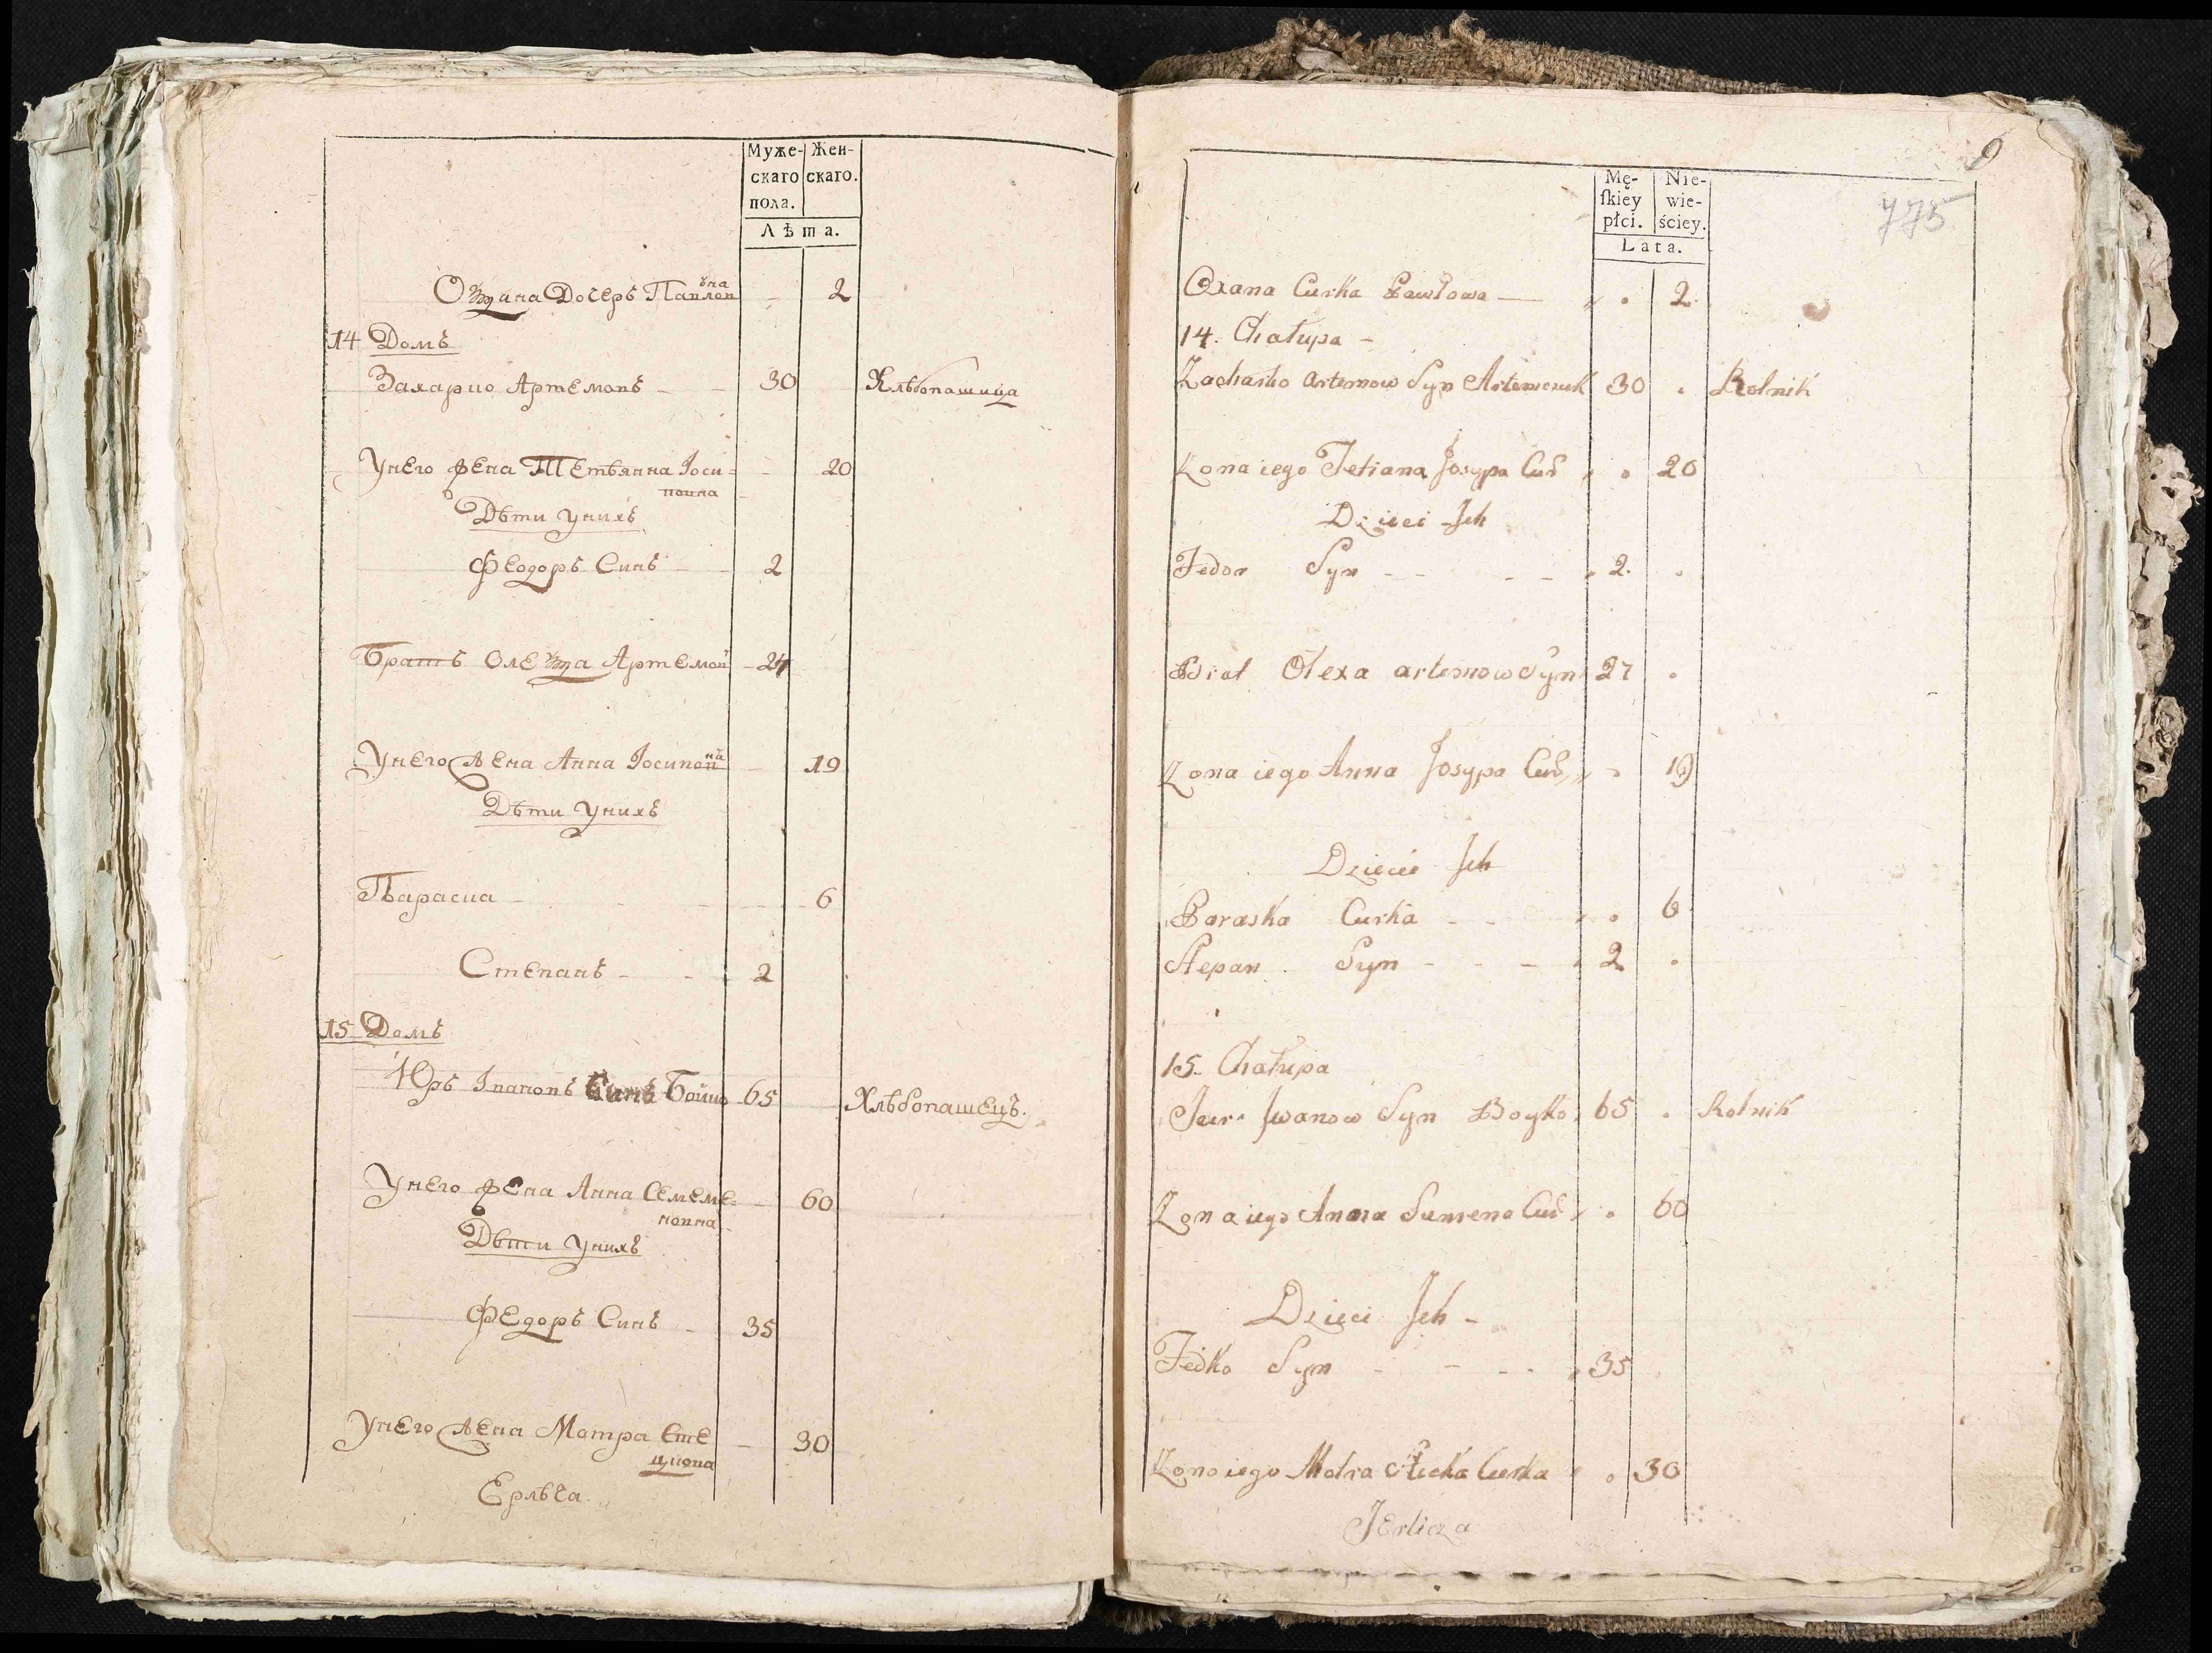 Муже-
скаго
пола.
Жен-
скаго.
Лѣта.
Оѯана Дочеръ Павлов
ъна
2
14 Домъ
Захарко Артемовъ 30 Хлѣбопашица
Унего жена Тетьянна Іоси= 20
повна
Дѣти унихъ
Феодоръ Синъ 2
Братъ Олеѯа Артемов 24
Унего жена Анна Іосипов
на
19
Дѣти унихъ
Параска 6
Степанъ 2
15 Домъ
Юръ Івановъ Синъ Бойко 65 Хлѣбопашецъ.
Унего жена Анна Семеме= 60
новна
Дѣти унихъ
Федоръ Синъ 35
Унего жена Мотра Сте 30
цкова
Ерлѣча.
9
775
Mę-
ſkiey
płci.
Nie-
wie-
ściey.
Lata.
Oxana Curka Pawłowa — 2
14. Chałupa -
Zacharko Artemow Syn Artemczuk 30 Rolnik
Zona iego Tetiana Josypa Cur 20
Dzieci Jch
Fedor Syn 2.
Brat Olexa artemow Syn 27
Zona iego Anna Josypa Cur 19
Dzieci Jch
Paraska Curka 6
Stepan Syn 2
15. Chałupa
Jur Jwanow Syn Boyko 65 Rolnik
Zona iego Anna Semena Cur 60
Dzieci Jch -
Fedko Syn 35
Zona iego Motra Stecka Curka 30
Jerlicza